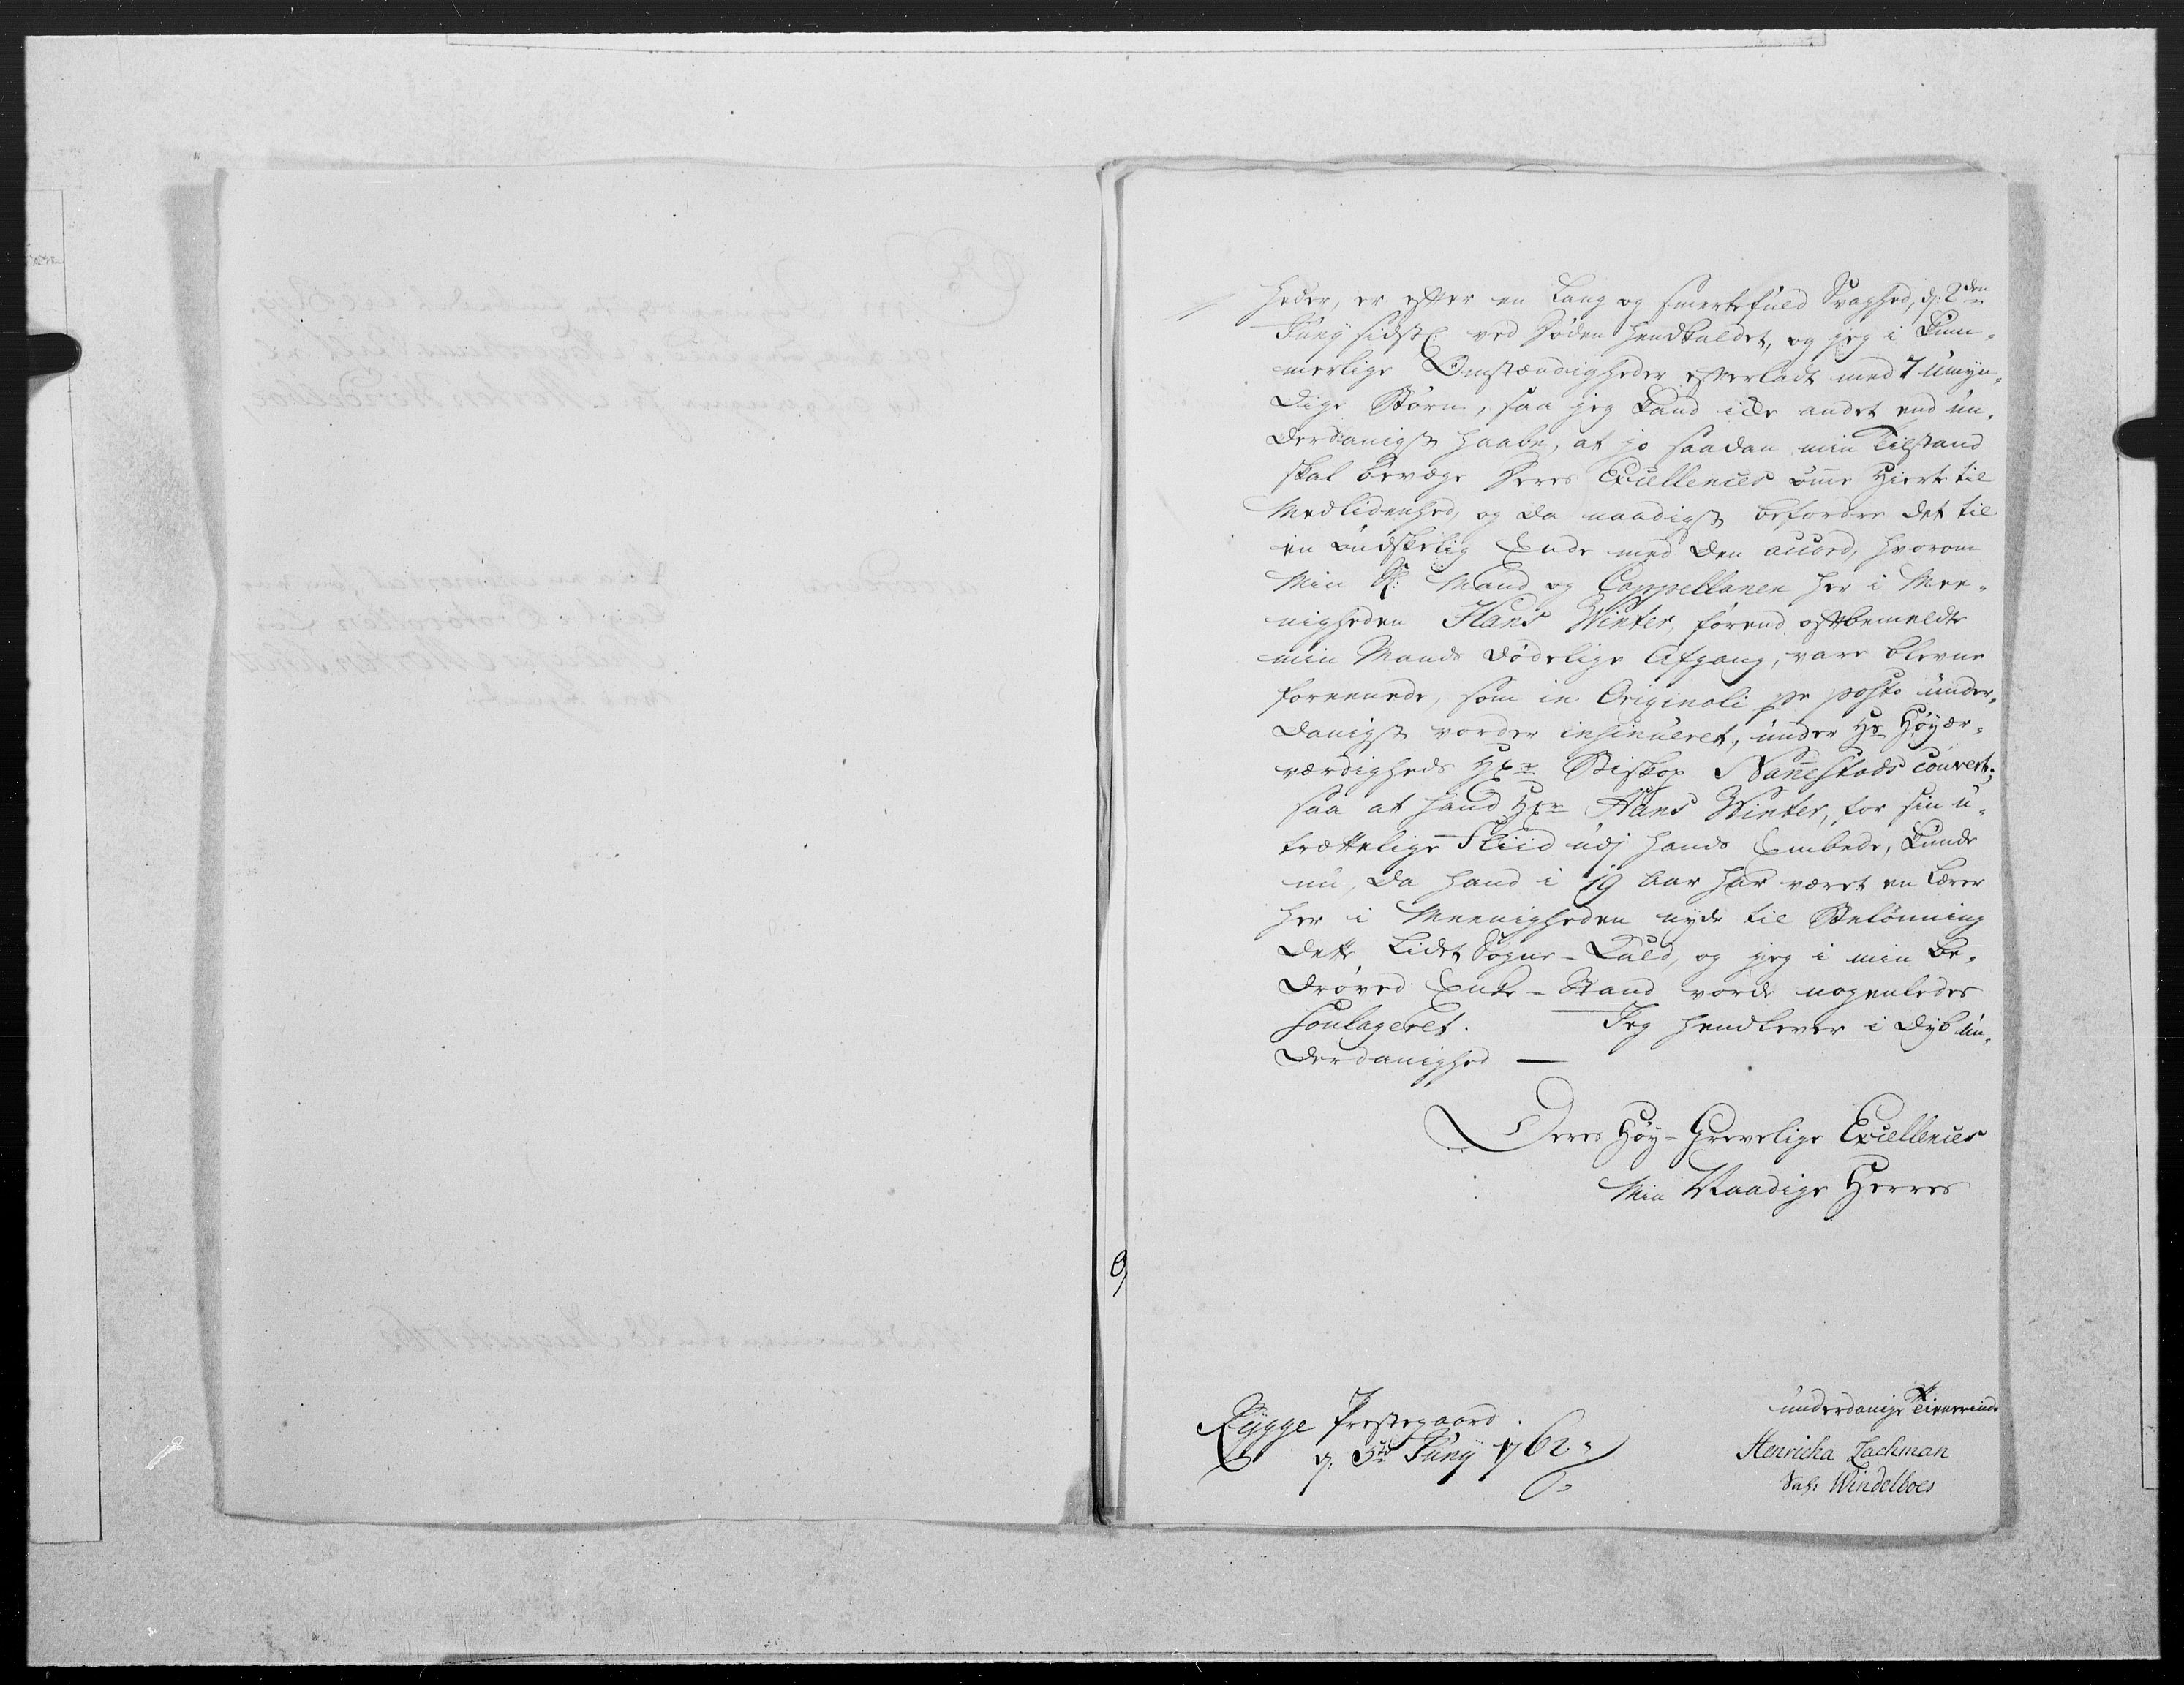 heder, er efter en lang og smertefuld Svaghed, d: 2den
Juny sidstl: ved Døden hendkaldet, og jeg i Kum-
merlige Omstændigheder efterladt med 7 umyn-
dige Børn, saa jeg kand icke andet end un-
derdanigst haabe, at jo saadan min Tilstand
skal bevæge Deres Excellences ømme Hierte til
Medlidenhed, og da naadigst befordre det til
en ønskelig Ende med den accord, hvorom
Min Sl: Mand og Cappellanen her i Mee-
nigheden Hans Winter, førend oftbemeldte
min Mands dødelige Afgang, vare blevne
foreenede, som in Originali pr posto under-
danigst vorder insinueret, under Hs Høyær-
værdigheds Hr Biskop Nannestads couvert;
saa at hand Hr Hans Winter, for sin u-
trættelige Fliid udj hands Embede, kunde
nu, da hand i 19 Aar har været en Lærer
her i Meenigheden nyde til Belønning
dette lidet Sogne-Kald, og jeg i min be-
drøved Enke-Stand vorde nogenledes
soulageret. Jeg hendlever i dyb un-
derdanighed —
Deres Høy-Grevelige Excellences
Min Naadige Herres
9
Rygge Præstegaard
d: 5te Juny 1762
underdanige Tienerinde
Henricha Lachman
Sal: Windelboes